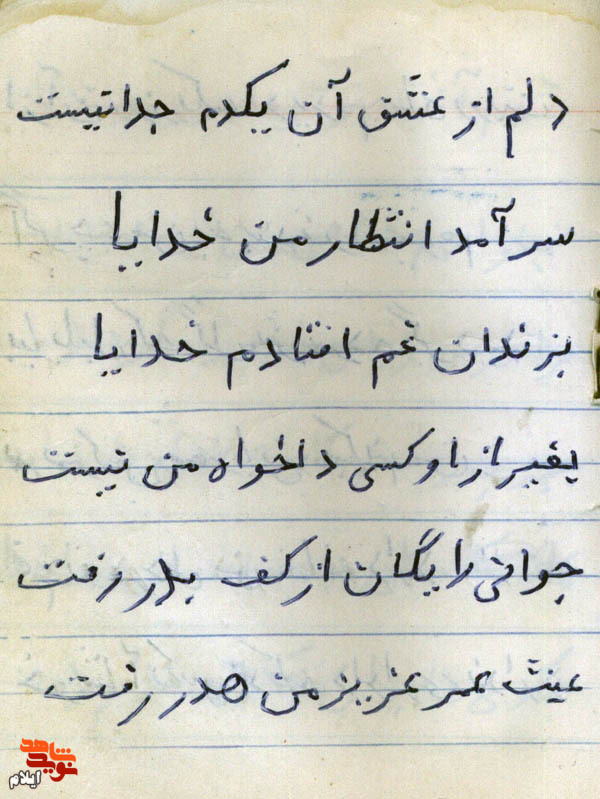 دلم از عشق آن یکدم جدا نیست
سر آمد انتظار من خدایا
بزندان غم افتادم خدایا
بغیر از او کسی دلخواه من نیست
جوانی رایگان از کف بدر رفت
عبث عمر عزیز من هدر رفت
نوید شاهد
ایلام